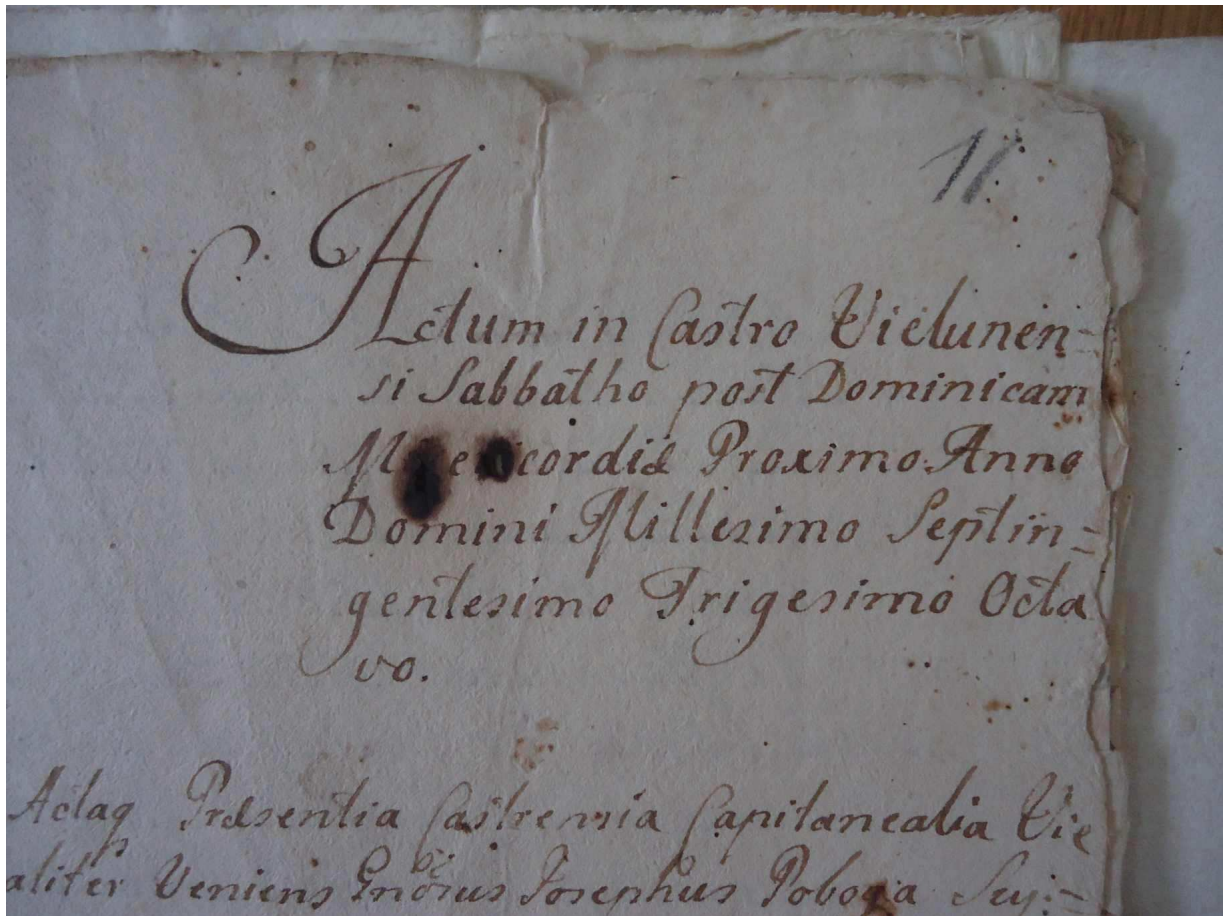 11
Actum in Castro Vielunen=
si Sabbatho post Dominicam
Proximo Anno
Domini Millesimo Septin=
gentesimo Trigesimo Octa
vo.
Actaq Præsentia Castrensia Capitanealia Vie
aliter Veniens Josephus Poboga